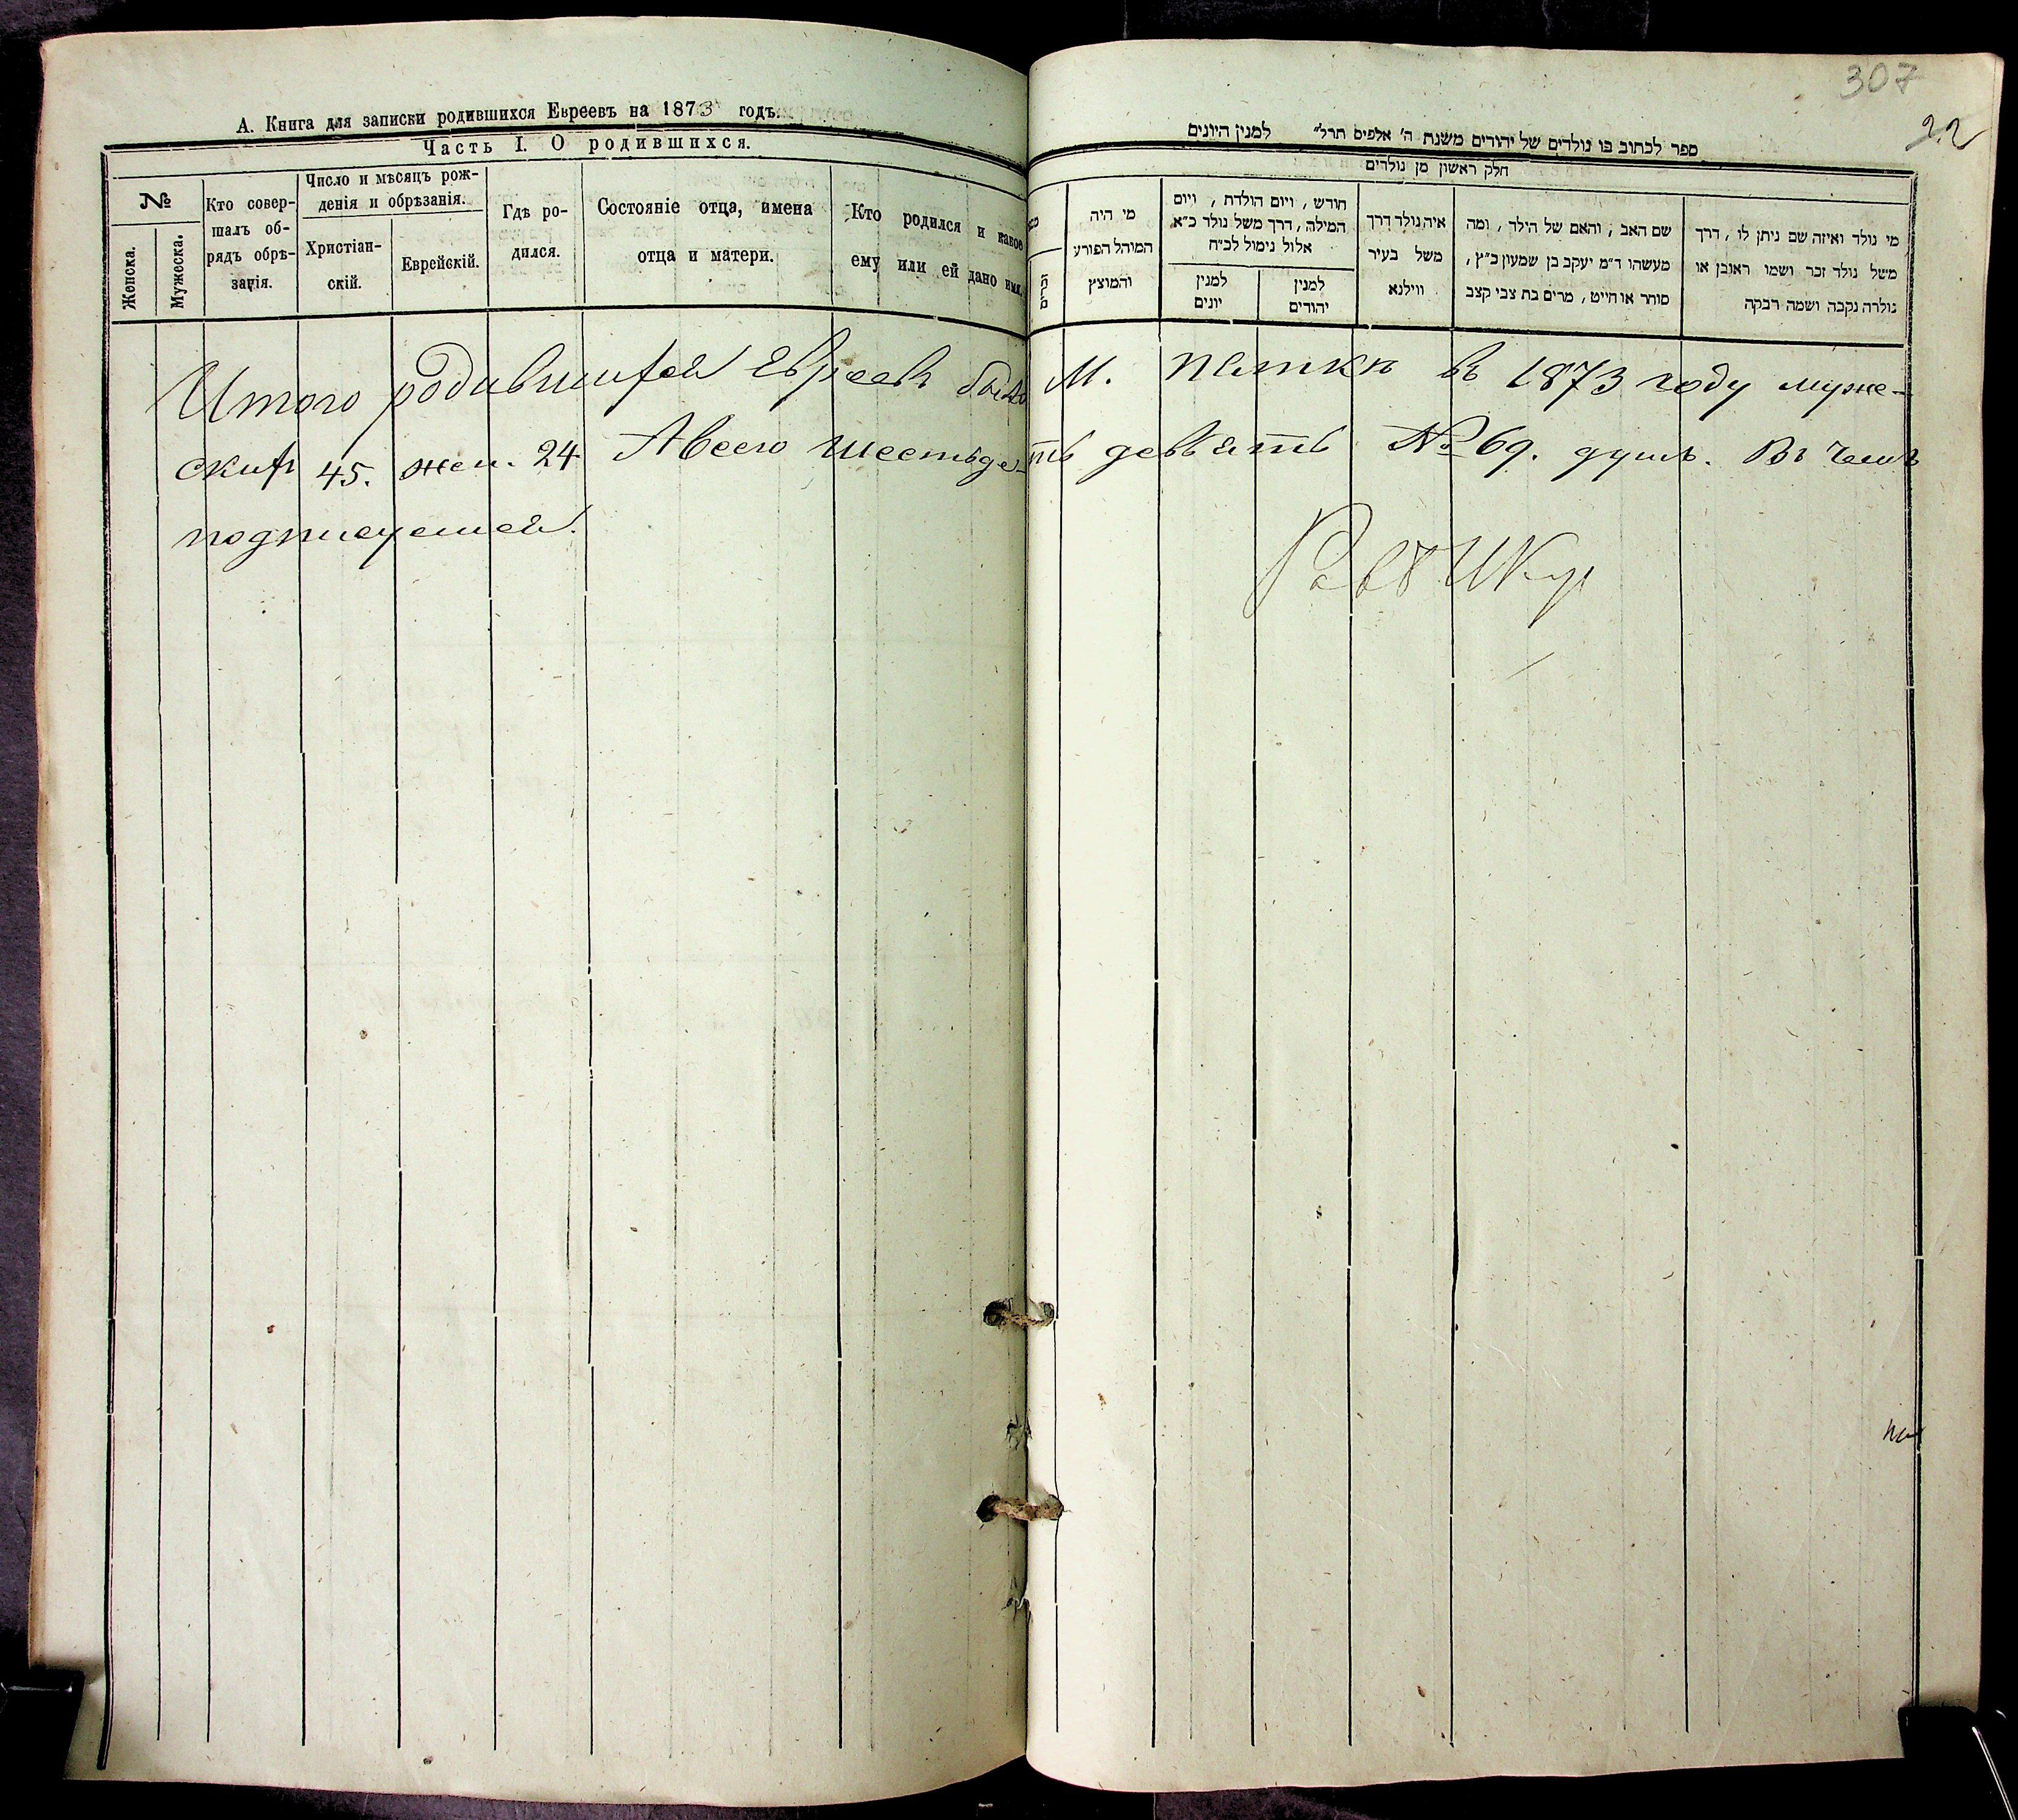 А. Книга для записки родившихся Евреевъ на 1873 годъ.
Часть I. О родившихся.
№
Женска.
Мужеска.
Кто совер-
шалъ об-
рядъ обрѣ-
занія.
Число и мѣсяцъ рож-
денія и обрѣзанія.
Христіан-
скій.
Еврейскій.
Гдѣ ро-
дился.
Состояніе отца, имена
отца и матери.
Кто родился и какое
ему или ей дано имя.
307
22
ספר לכתוב בו נולדים של יהודים משנת ה' אלפים תרל״ למנין היונים
חלק ראשון מן נולדים
זכרים
מי היה
המוהל הפורע
והמוצץ
חודש, ויום הולדת, ויום
המילה, דרך משל נולד כ״א
אלול נימול לכ״ח
למנין
יונים
למנין
יהודים
איה נולד דרך
משל בעיר
ווילנא
שם האב, והאם של הילד, ומה
מעשהו ד״מ יעקב בן שמעון כ״ץ,
סוחר או חייט, מרים בת צבי קצב
מי נולד ואיזה שם ניתן לו, דרך
משל נולד זכר ושמו ראובן או
נולדה נקבה ושמה רבקה
Итого родившихся Евреевъ было М. въ 1873 году муже-
скихъ 45. жен. 24 А всего шестьдесять девять № 69. душъ. Въ чемъ
подписуемся.